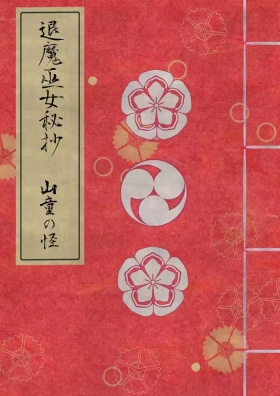 退魔巫女秘抄
山童の怪